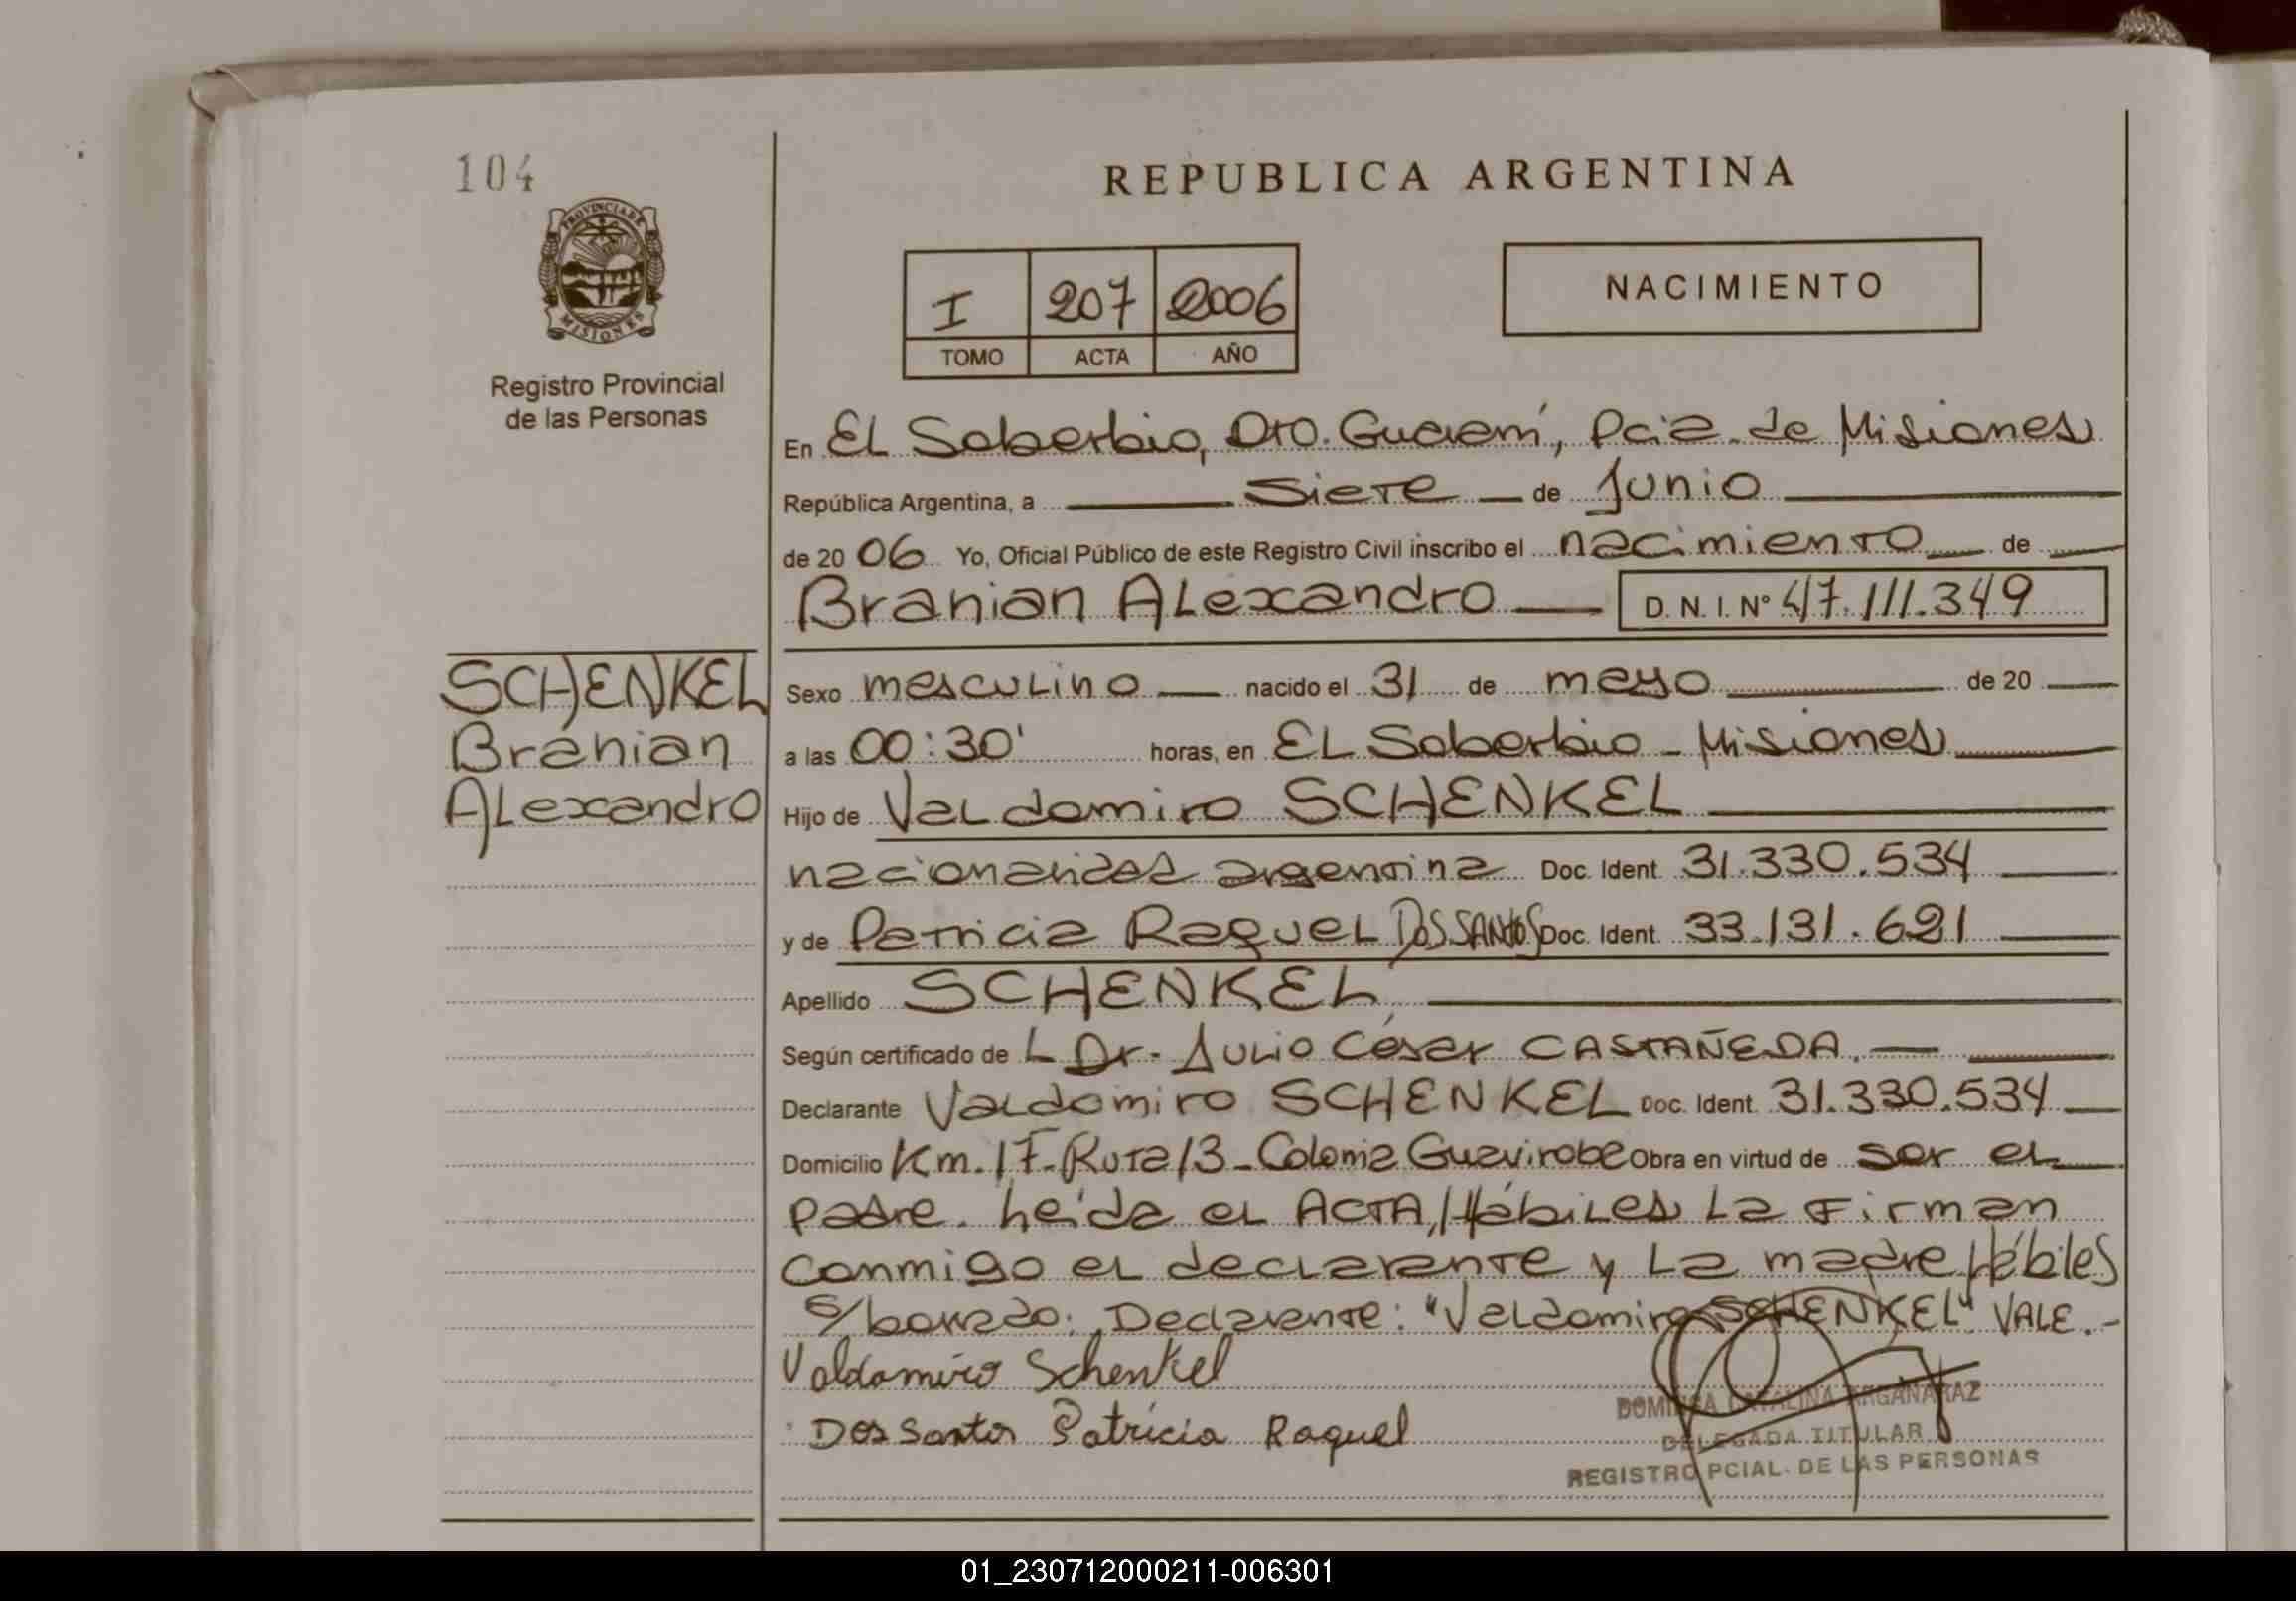 104
REPUBLICA ARGENTINA
PROVINCIA DE
MISIONES
Registro Provincial
de las Personas
I 207 2006
TOMO ACTA AÑO
NACIMIENTO
En EL Soberbio, Dto. Guaraní, Pcia. de Misiones
República Argentina, a Siete de Junio
de 20 06 Yo, Oficial Público de este Registro Civil inscribo el nacimiento de
Branian ALexandro D.N.I. Nº 47.111.349
SCHENKEL
Branian
ALexandro
Sexo masculino nacido el 31 de mayo de 20
a las 00:30' horas, en EL Soberbio - Misiones
Hijo de Valdomiro SCHENKEL
nacionalidad argentina Doc. Ident. 31.330.534
y de Patricia Raquel DOS SANTOS Doc. Ident. 33.131.621
Apellido SCHENKEL
Según certificado de L Dr. Julio César CASTAÑEDA.
Declarante Valdomiro SCHENKEL Doc. Ident. 31.330.534
Domicilio Km. 17-Ruta 13-Colonia Guavirobe Obra en virtud de ser el
padre. Leída el ACTA, Hábiles La Firman
conmigo el declarante y La madre Hábiles
S/borrado: Declarante: "Valdomiro SCHENKEL" VALE.-
Valdomiro Schenkel
Dos Santos Patricia Raquel
CATALINA ARGAÑARAZ
DELEGADA TITULAR
REGISTRO PCIAL. DE LAS PERSONAS
01_230712000211-006301